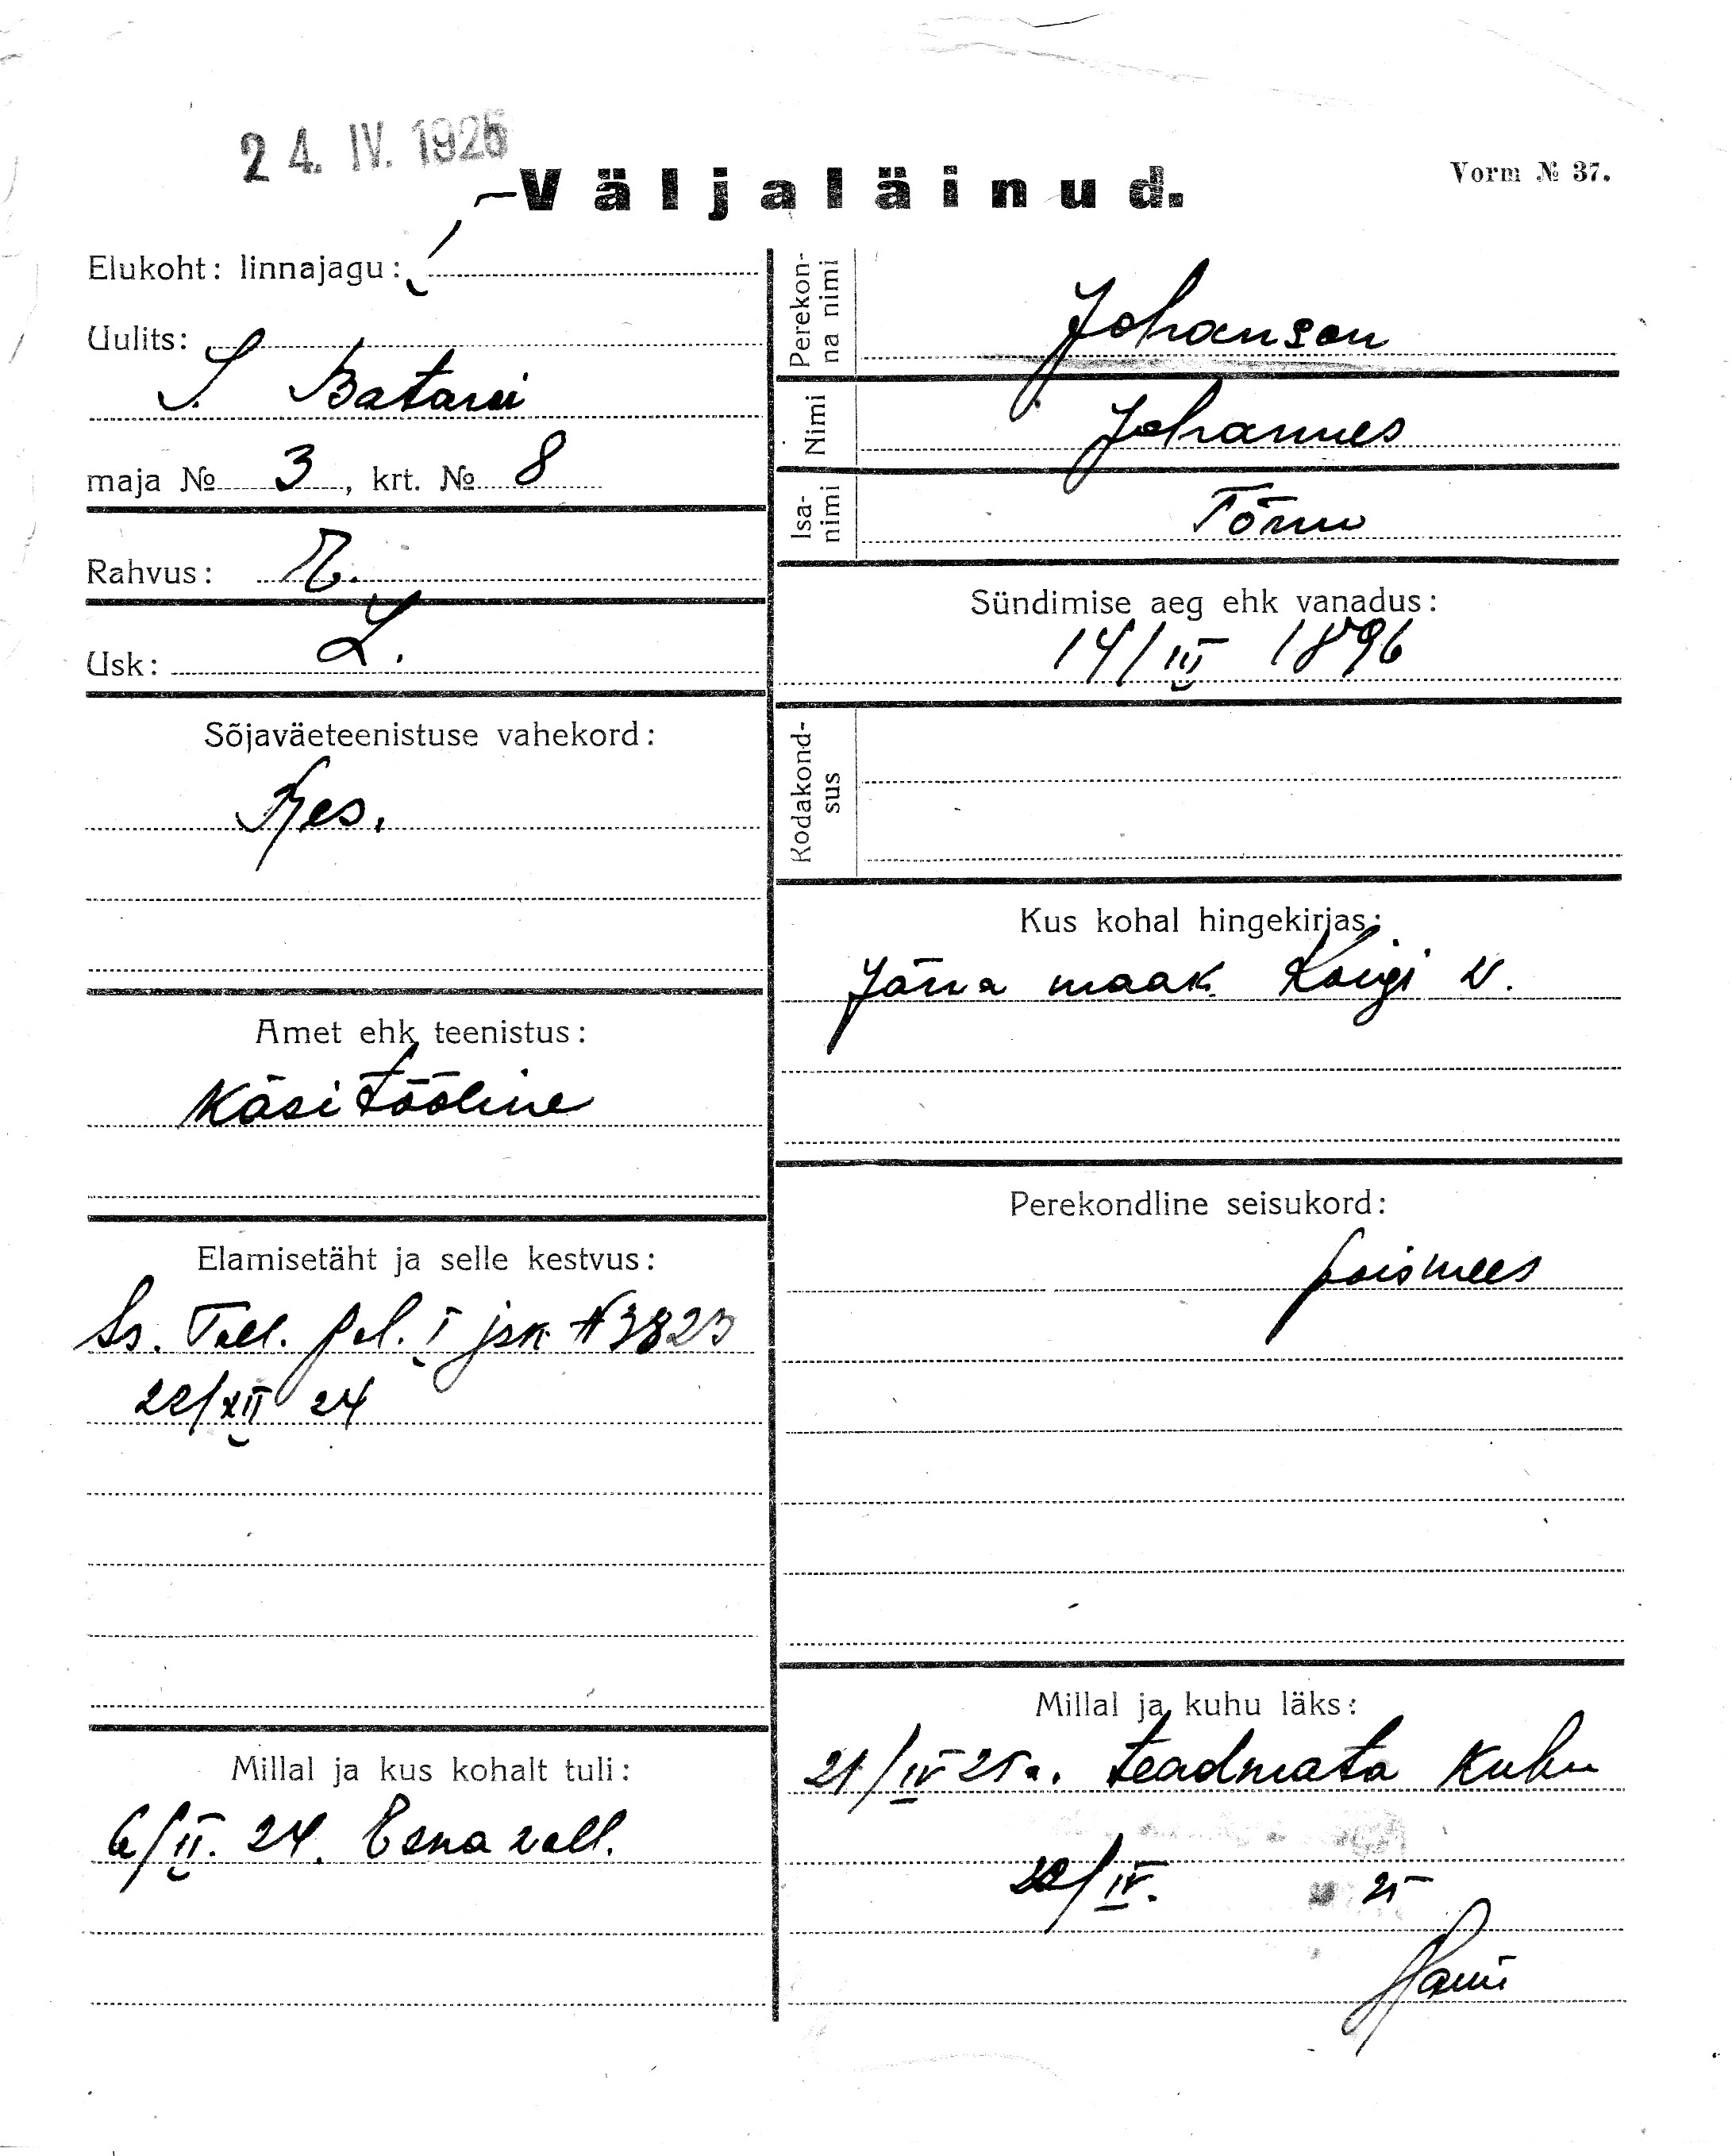 24. IV. 1925
Väljaläinud.
Vorm № 37.
Elukoht: linnajagu: I
Uulits:
S. Batarei
maja № 3, krt. № 8
Rahvus: E.
Usk: L.
Sõjaväeteenistuse vahekord:
Res.
Amet ehk teenistus:
Käsitööline
Elamisetäht ja selle kestvus:
Is. Tall. pol. I jsk № 3823
22/XII 24
Millal ja kus kohalt tuli:
6/II. 24. vall.
Perekon-
na nimi
Johanson
Nimi
Johannes
Isa-
nimi
Tõnu
Sündimise aeg ehk vanadus:
14/III 1896
Kodakond-
sus
Kus kohal hingekirjas:
Järva maak. Koigi v.
Perekondline seisukord:
poismees
Millal ja kuhu läks:
21/IV 25 a. teadmata kuhu
22/IV. 25